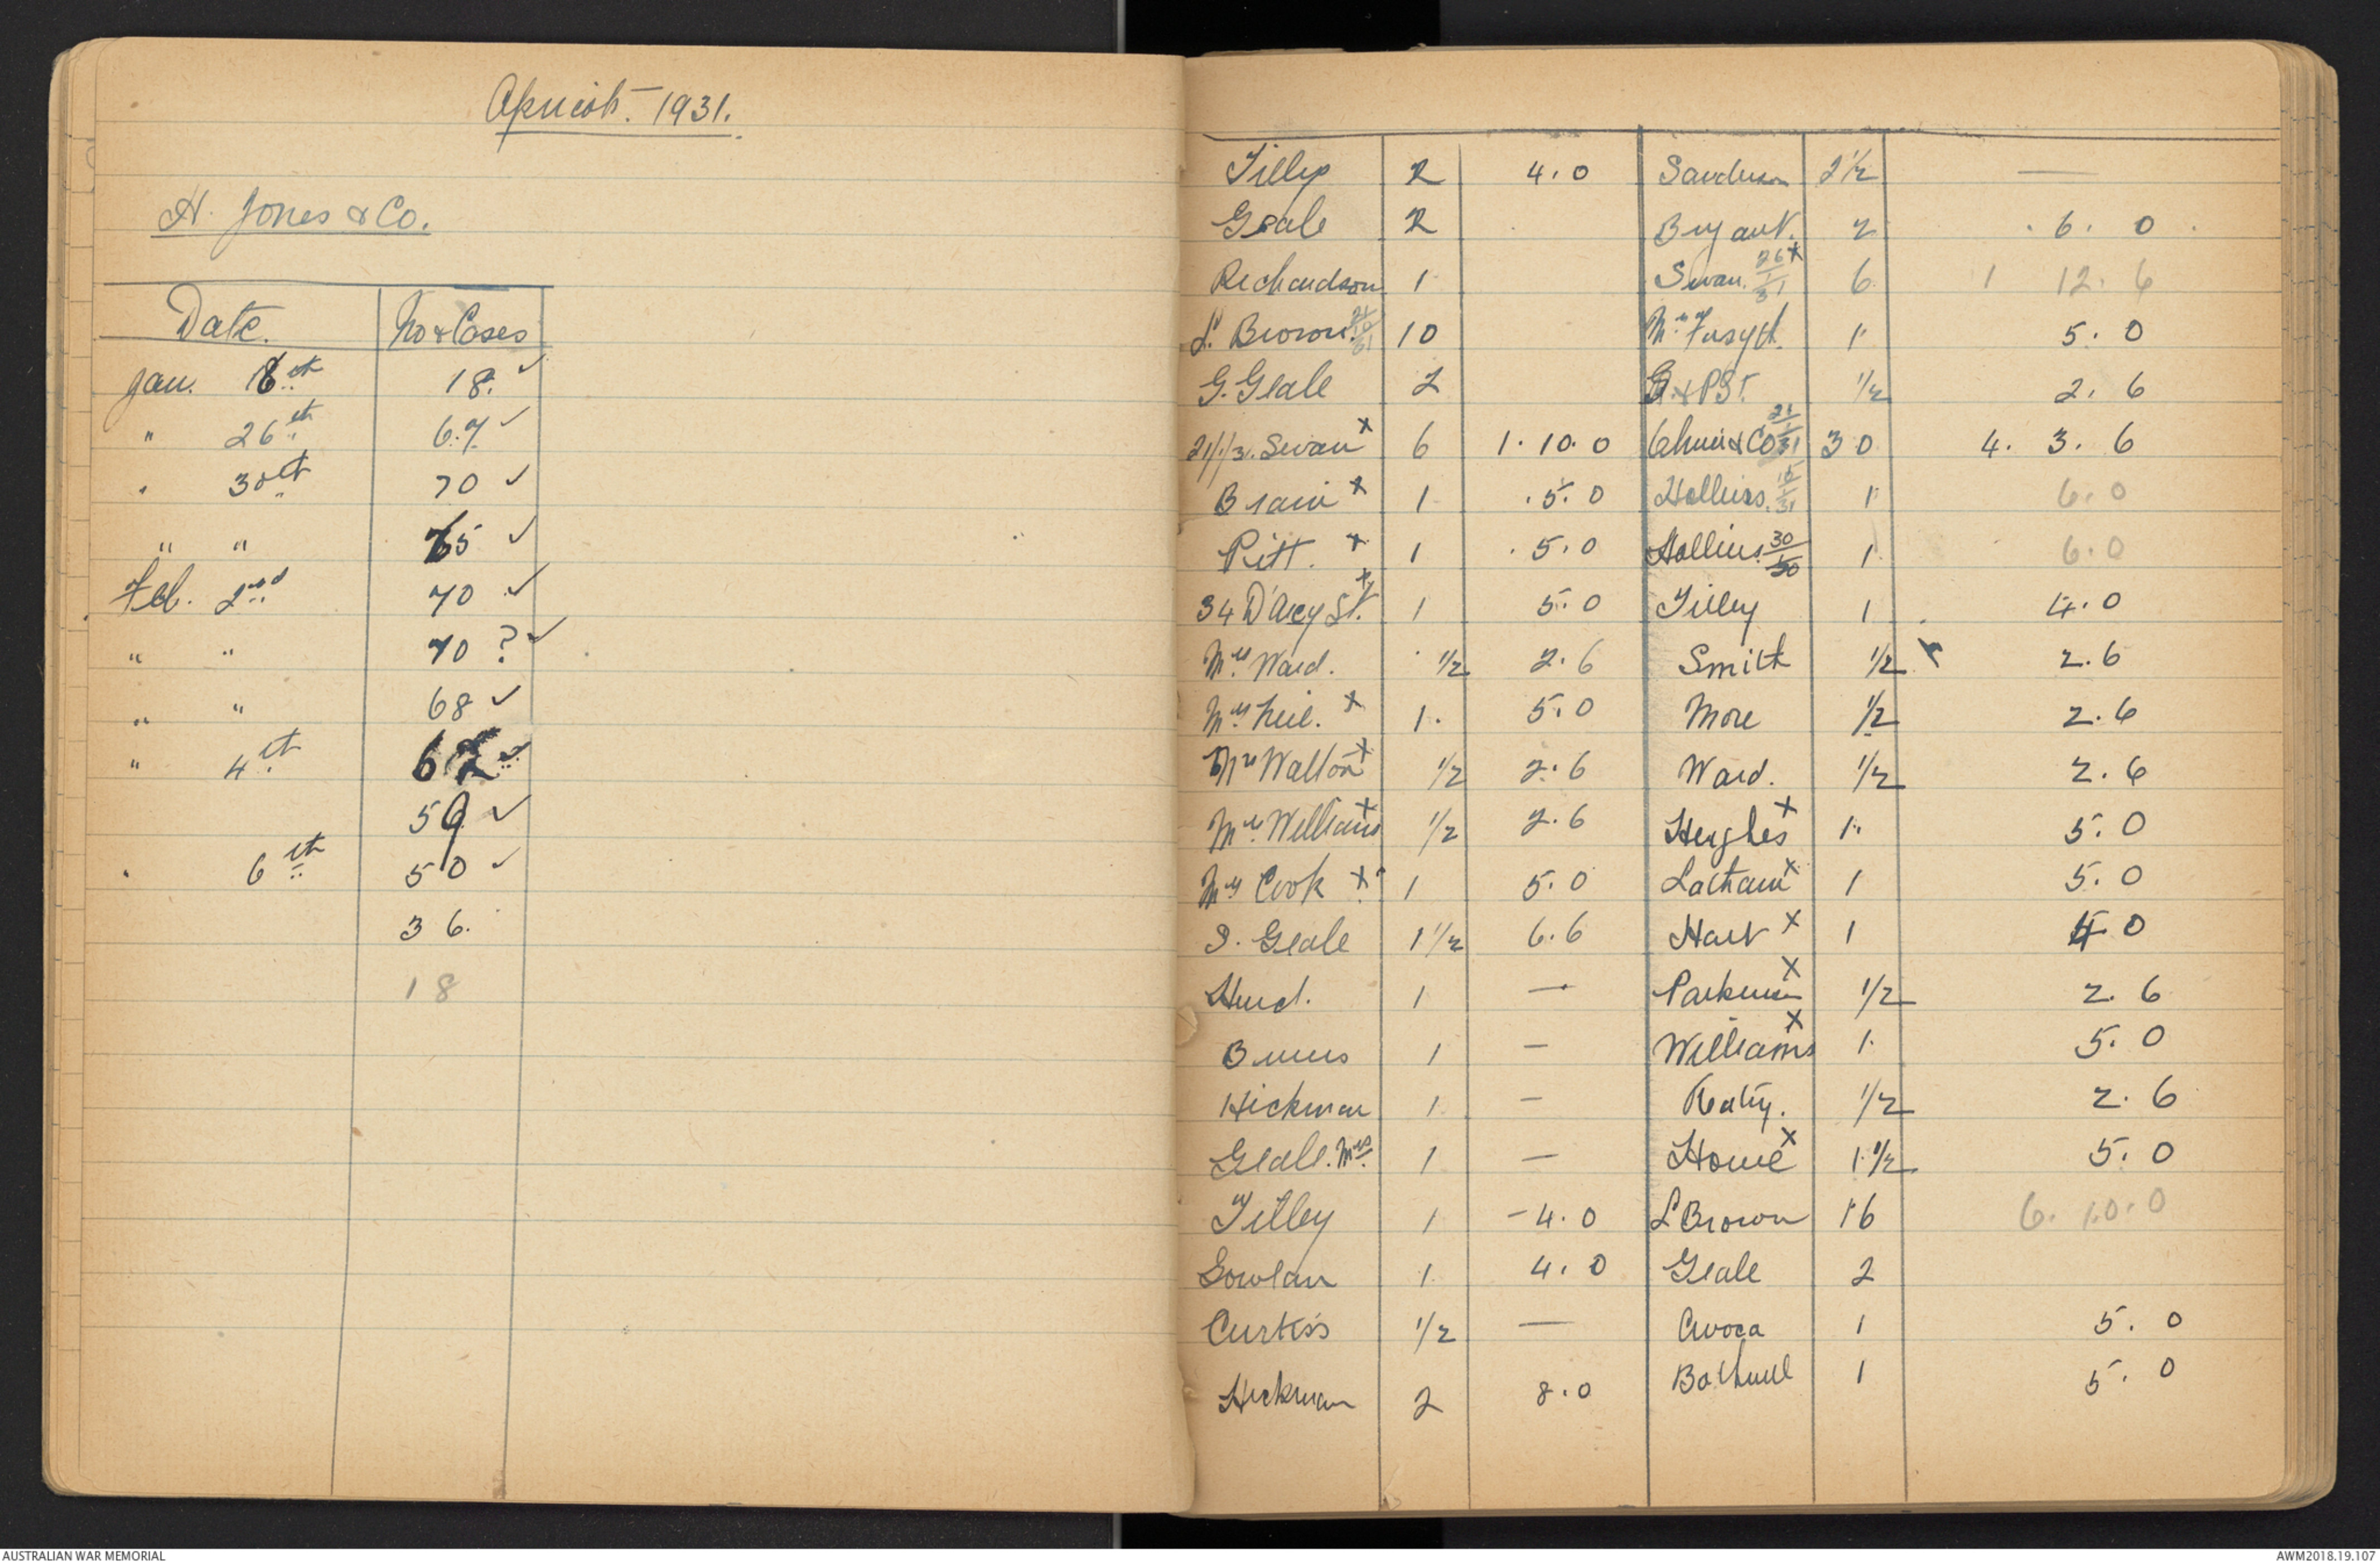 Apricots. 1931.
H. Jones & Co.
Date. No of Cases
Jan. 18th 18. ✓
" 26th 67 ✓
" 30th 70 ✓
" " 75 ✓
Feb. 2nd 70 ✓
" " 70 ? ✓
" " 68 ✓
" 4th 62 ✓
59 ✓
" 6th 50 ✓
36.
18
Tilley 2 4.0 Sanderson 2 1/2 —
Geale 2 Bryant. 2 6. 0
Richardson 1 Swan. 26/1/31 x 6 1 12. 6
L. Brown 10 Mrs Forsyth. 1 5. 0
G. Geale 2 1/2 2. 6
21/1/31. Swan x 6 1. 10. 0 & Co 21/1/31 30 4. 3. 6
Brain x 1 5. 0 Hollins. 1 6. 0
Pitt. x 1 5. 0 Hollins 30 1 6. 0
34 D'Arcy St. x 1 5. 0 Tilley 1 4. 0
Mrs Ward. 1/2 2. 6 Smith 1/2 2. 6
Mrs Neil. x 1. 5. 0 More 1/2 2. 6
Mrs Walton x 1/2 2. 6 Ward. 1/2 2. 6
Mrs Williams x 1/2 2. 6 Hughes x 1. 5. 0
Mrs Cook x 1 5. 0 Latham x 1 5. 0
S. Geale 1 1/2 6. 6 Hart x 1 4 0
Hurd. 1 — Parkinson x 1/2 2. 6
1 — Williams x 1. 5. 0
Hickman 1 — 1/2 2. 6
Geale. Mrs 1 — Howe x 1 1/2 5. 0
Tilley 1 - 4. 0 L Brown 16 6. 10. 0
Gowlan 1 4. 0 Geale 2
Curtiss 1/2 — Avoca 1 5. 0
Hickman 2 8. 0 Bothwell 1 5. 0
AUSTRALIAN WAR MEMORIAL AWM2018.19.107